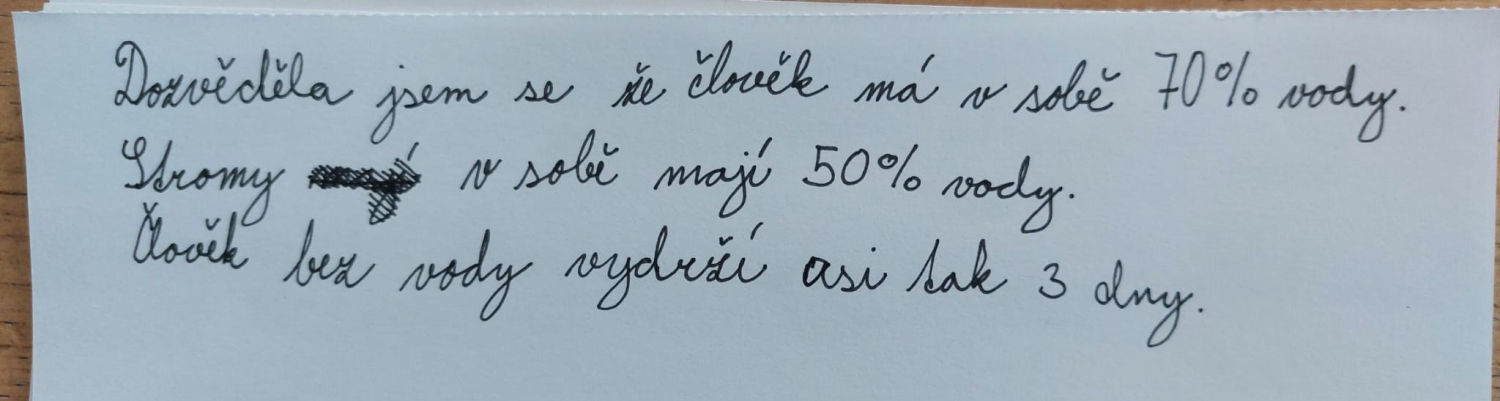 Dozvěděla jsem se že člověk má v sobě 70% vody.
Stromy v sobě mají 50% vody.
Člověk bez vody vydrží asi tak 3 dny.